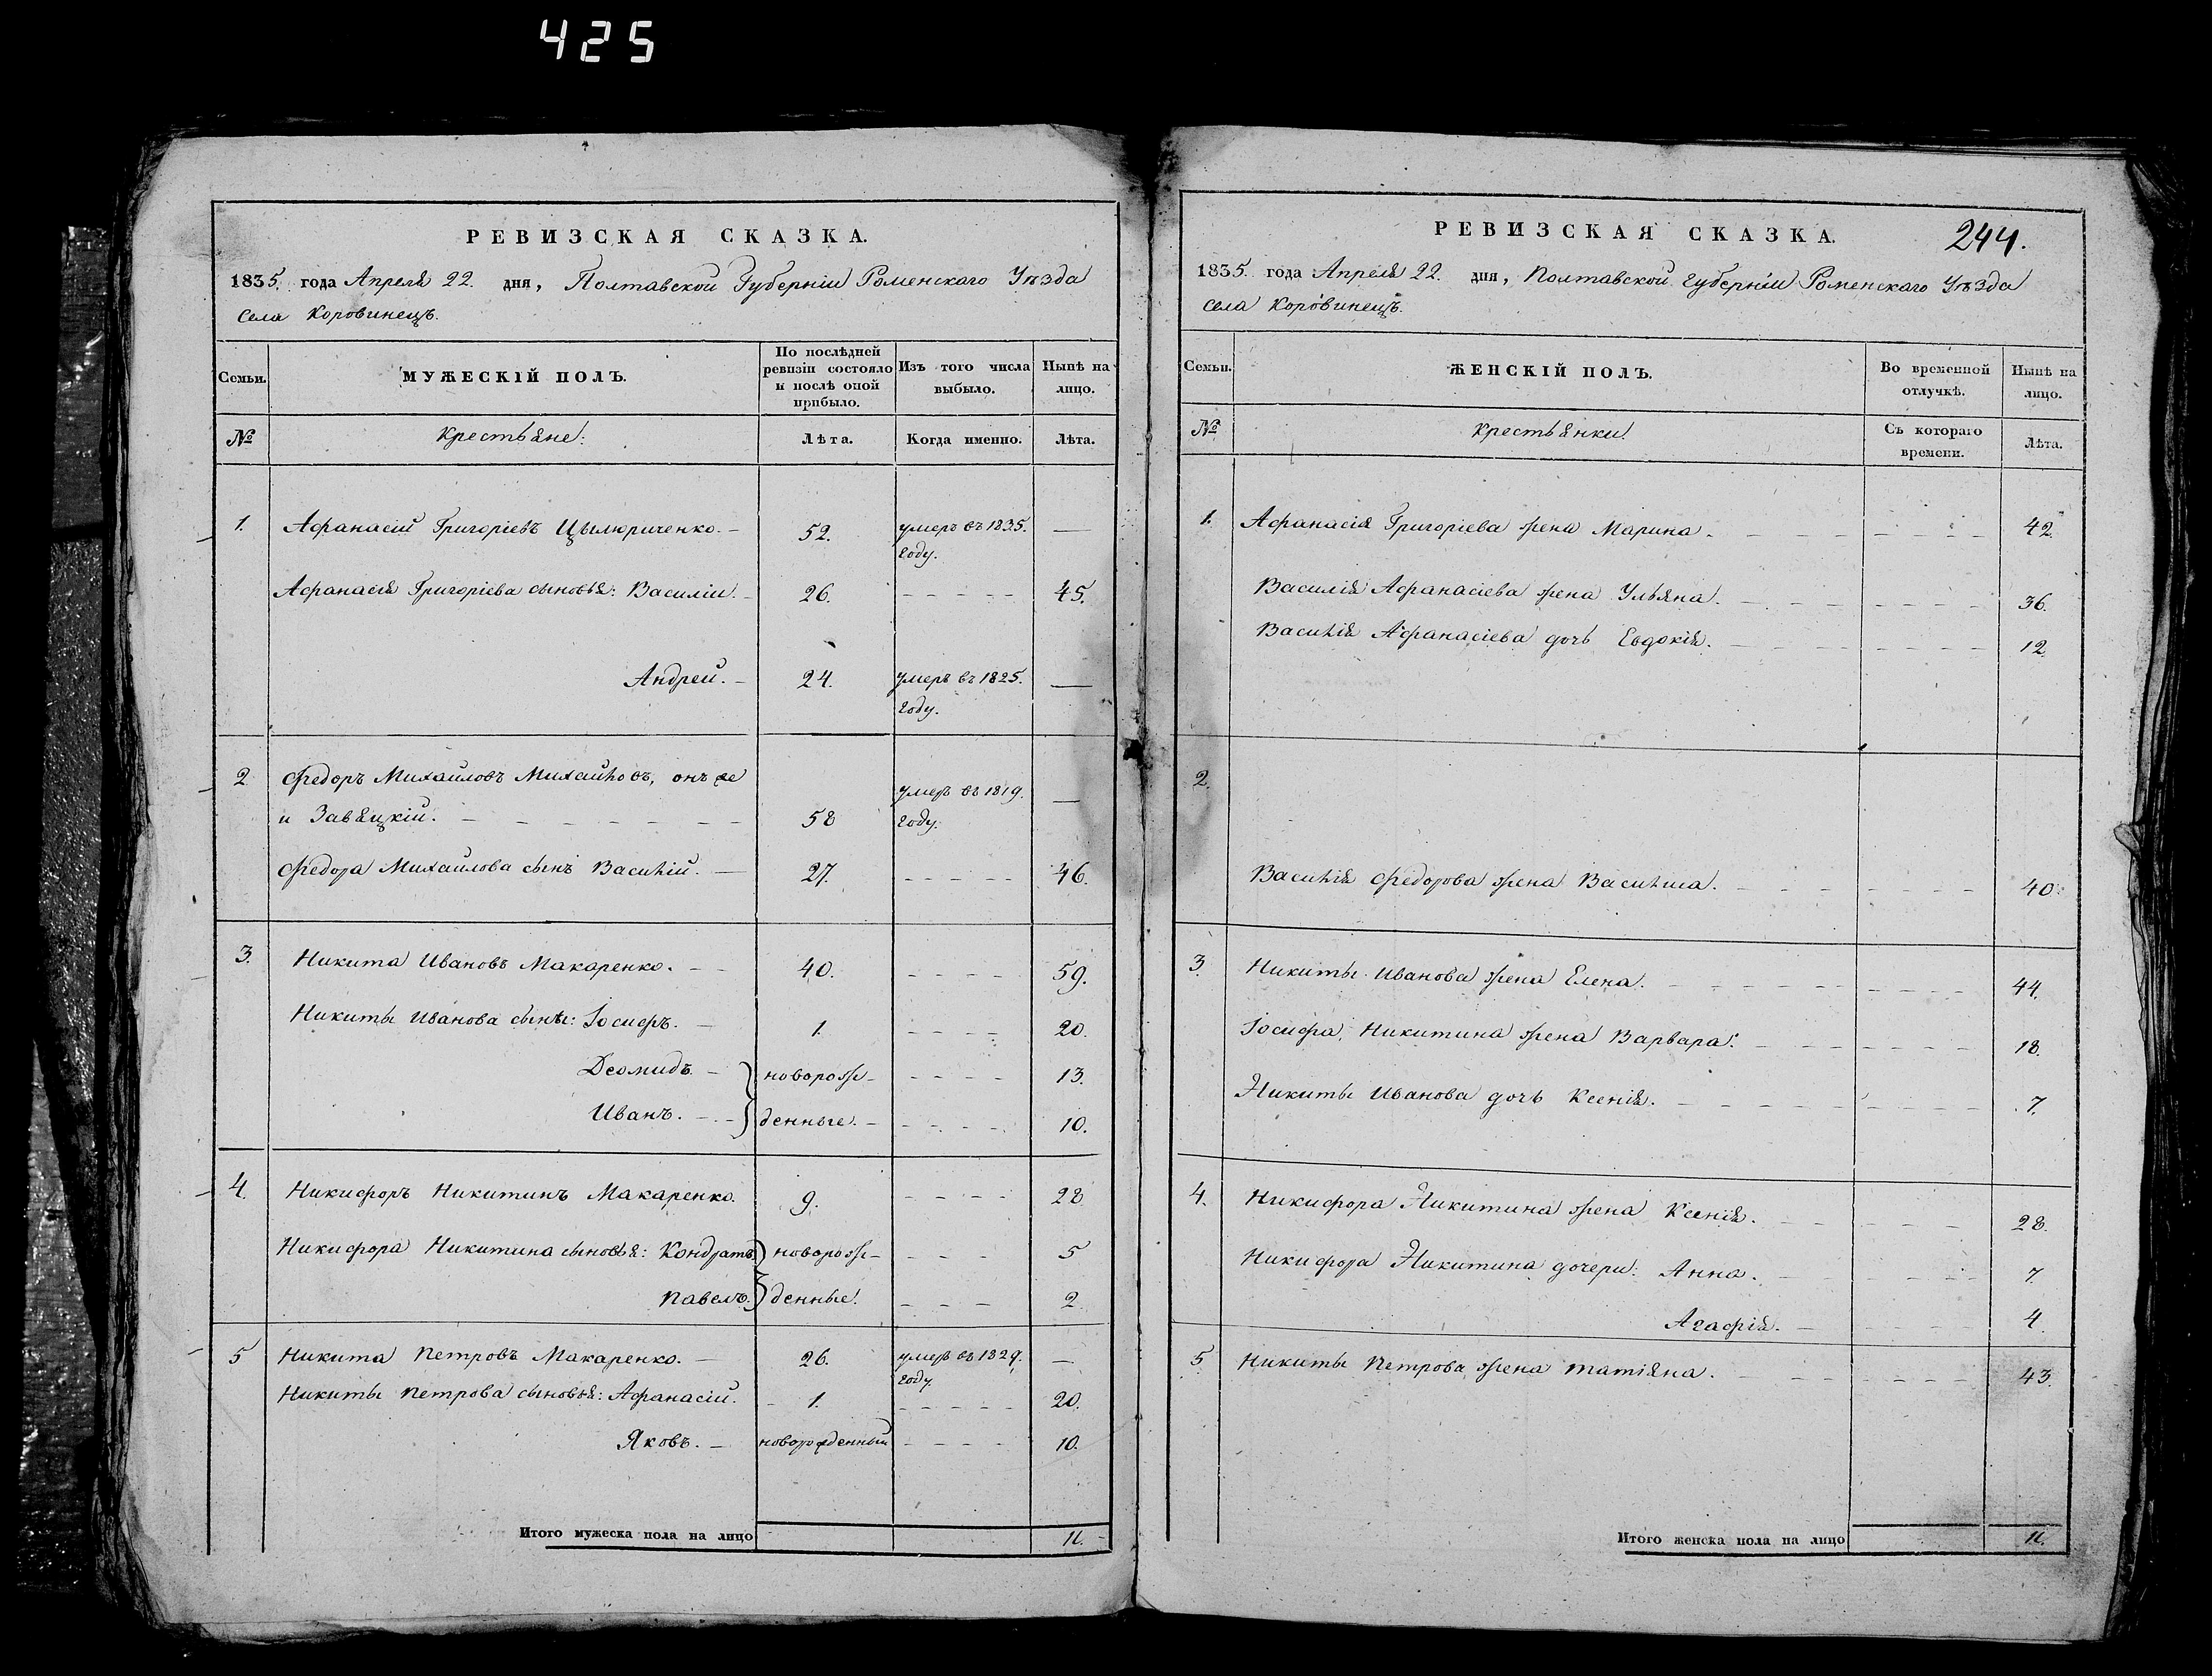 425
РЕВИЗСКАЯ СКАЗКА.
1835. года Апреля 22. дня, Полтавской Губерніи Роменскаго Уѣзда
села Коровинецъ.
Семьи. МУЖЕСКІЙ ПОЛЪ. По послѣдней ревизіи состояло и послѣ оной прибыло. Изъ того числа выбыло. Нынѣ на лицо.
№ Крестьяне: Лѣта. Когда именно. Лѣта.
1. Афанасій Григоріевъ Цылюриченко. – 52. умеръ въ 1835. году. —
Афанасія Григоріева сыновья: Василіи. – 26. – – – – – 45.
Андрей. – 24. умеръ въ 1825. году. —
2 Федоръ Михайловъ Михайловъ, онъ же
и Завяцкій. – – – – – – – 58 умеръ въ 1819. году. —
Федора Михайлова сынъ Василій. – 27. – – – – – 46.
3. Никита Ивановъ Макаренко. – – 40. – – – – 59.
Никиты Иванова сыны: Іосифъ. – 1. – – – – 20.
Деомидъ. – } новорож– – – – – 13.
Иванъ. – – } денные. – – – – – 10.
4. Никифоръ Никитинъ Макаренко. 9. – – – – 28
Никифора Никитина сыновья: Кондратъ } новорож– – – – 5
Павелъ. } денные. – – – 2
5 Никита Петровъ Макаренко. – 26. умеръ въ 1829. году. —
Никиты Петрова сыновья: Афанасій. – 1. – – – – – 20.
Яковъ. – новорожденный – – – – 10.
Итого мужеска пола на лицо 11.
РЕВИЗСКАЯ СКАЗКА. 244.
1835. года Апреля 22. дня, Полтавской губерніи Роменскаго Уѣзда
села Коровинецъ.
Семьи. ЖЕНСКІЙ ПОЛЪ. Во временной отлучкѣ. Нынѣ на лицо.
№ Крестьянки. Съ котораго времени. Лѣта.
1. Афанасія Григоріева жена Марина. – – – – – – – – 42.
Василія Афанасіева жена Ульяна. – – – – – – – – 36.
Василія Афанасіева дочь Евдокія. – – – – – – – – 12.
2.
Василія Федорова жена Василиса. – – – – – – – – 40.
3. Никиты Иванова жена Елена. – – – – – – – – – 44.
Іосифа, Никитина жена Варвара. – – – – – – – – 18.
Никиты Иванова дочь Ксенія. – – – – – – – – – 7.
4. Никифора Никитина жена Ксенія. – – – – – – – 28.
Никифора Никитина дочери: Анна. – – – – – – – 7
Агафія. – – – – – 4.
5. Никиты Петрова жена татіяна. – – – – – – – – 43.
Итого женска пола на лицо 11.